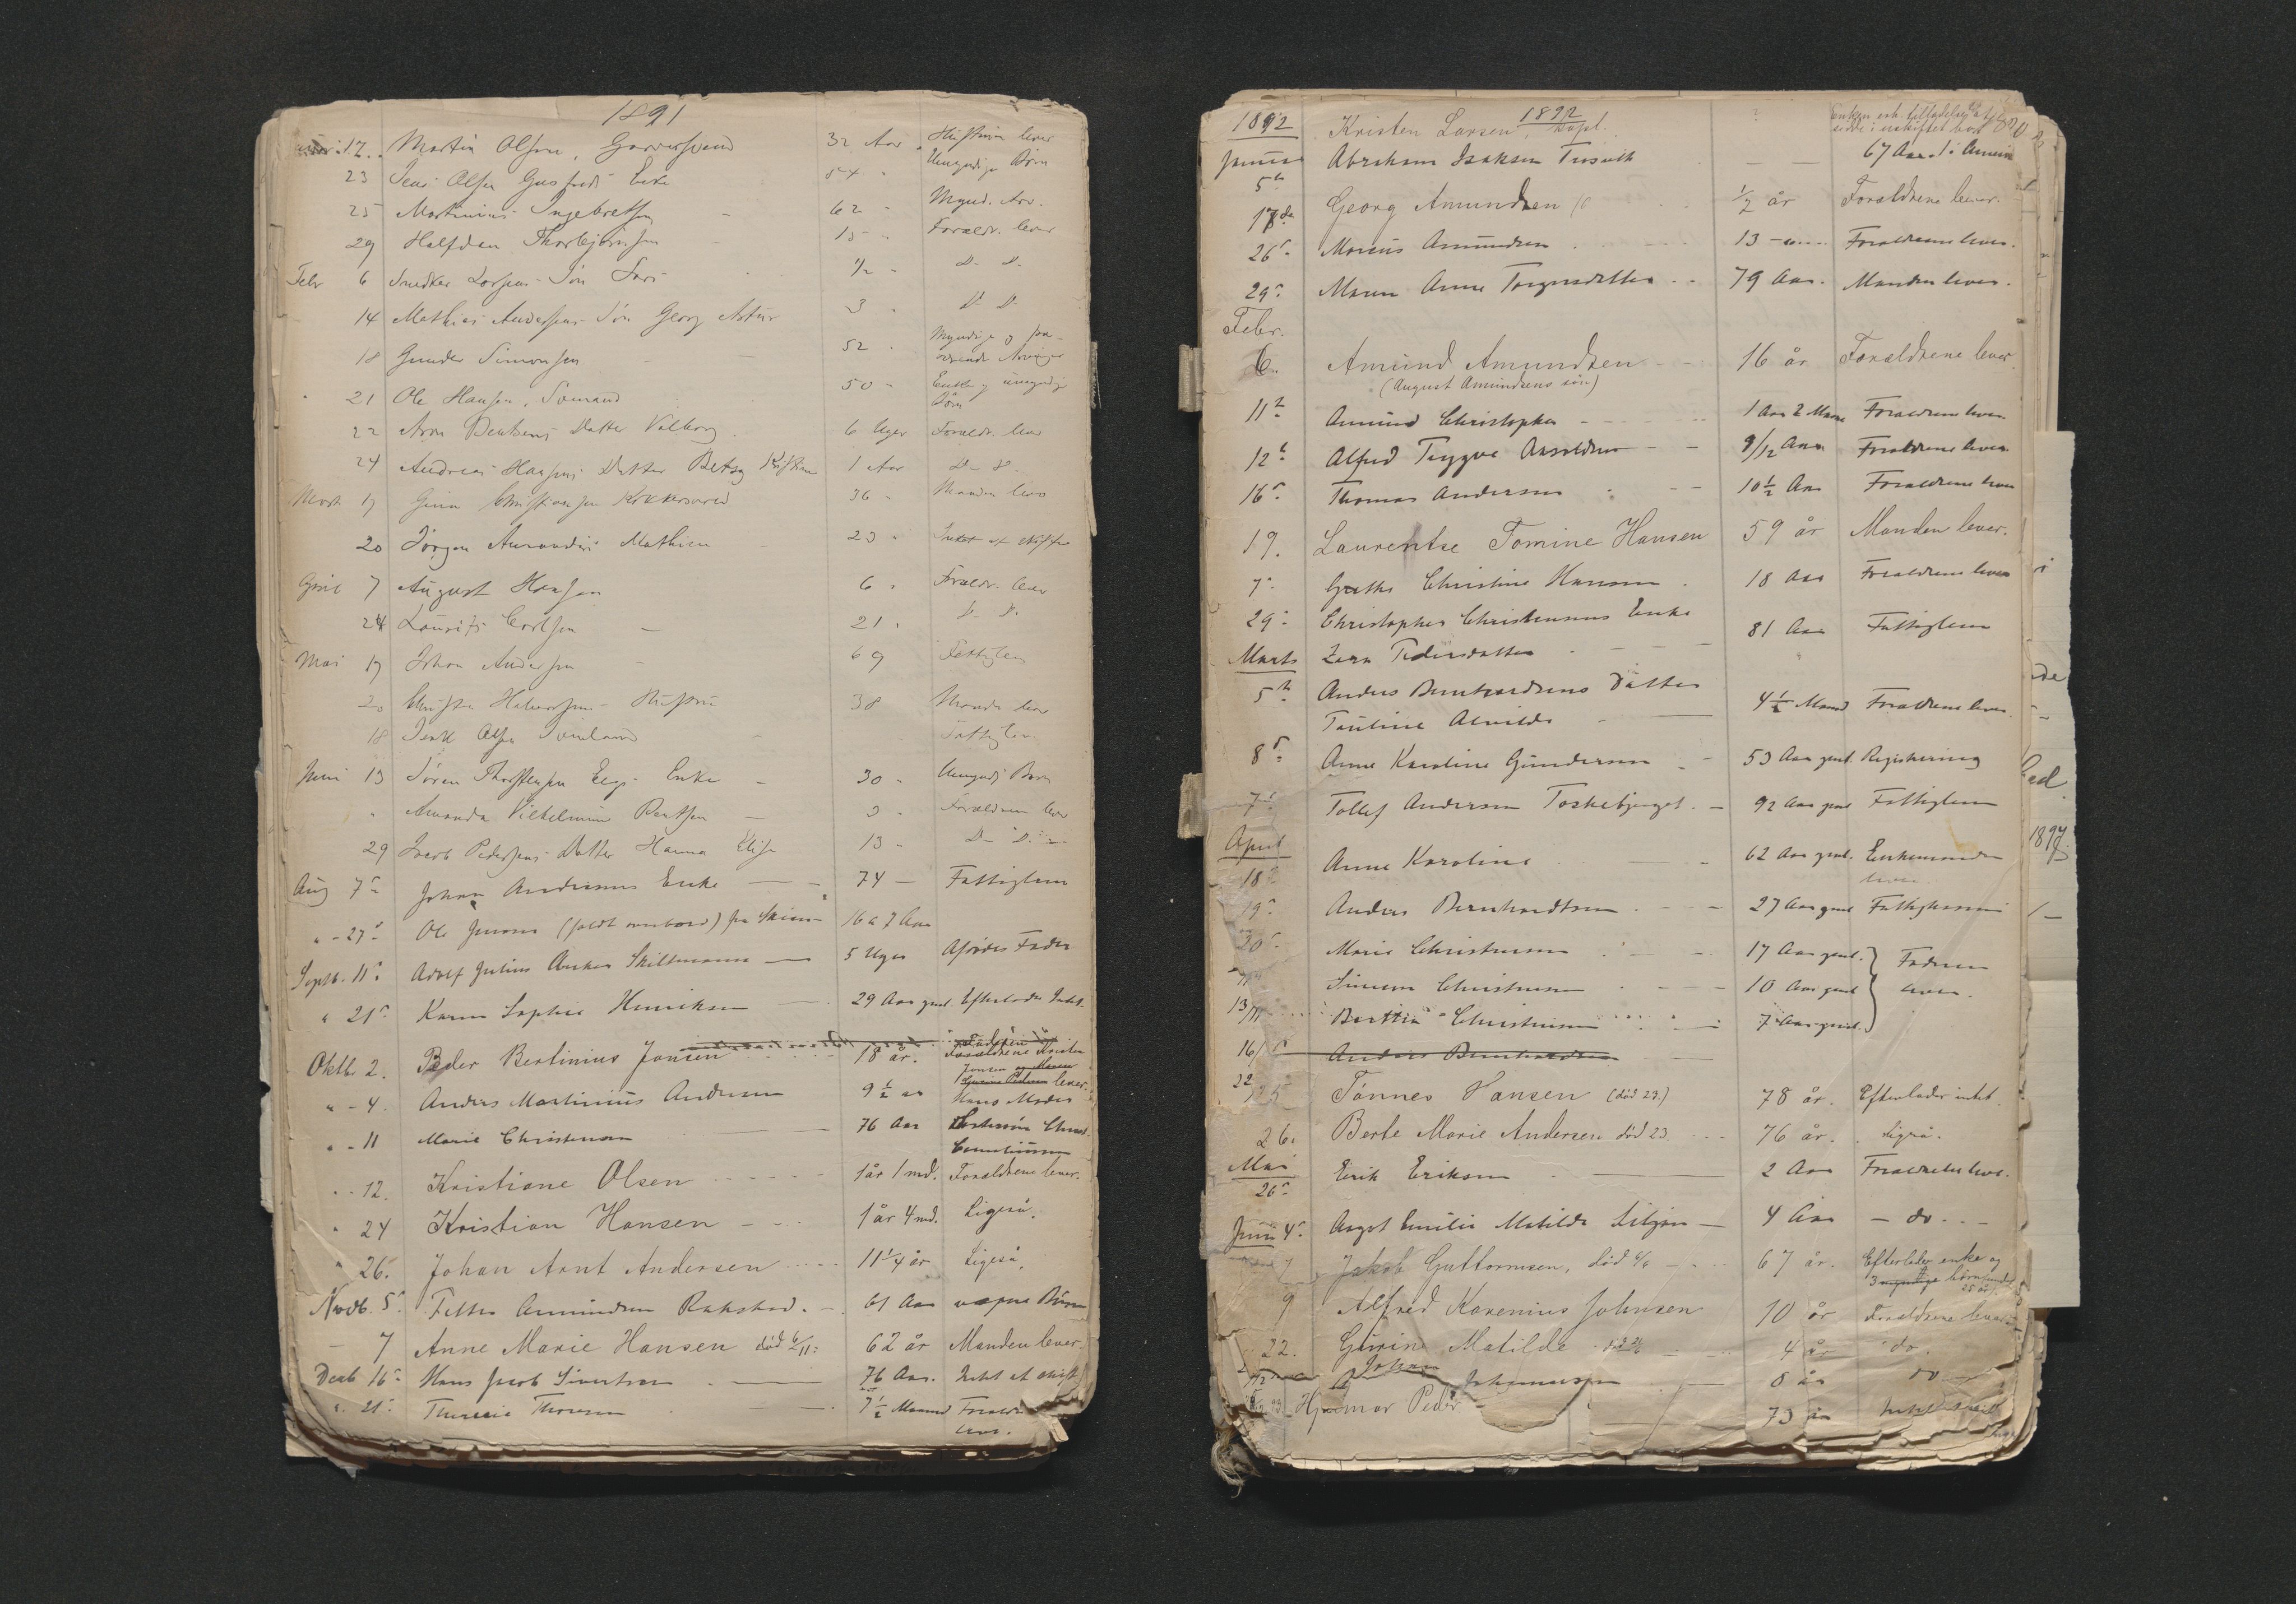 1891
12. Martin Olsen, Garversvend 32 Aar Hustruen lever
Umyndige Børn
23 Jens Olsen Gusfreds Enke 84 "
25 Martinius Ingebretsen - 62 " Mynd. Arv.
29 Halfdan Thorbjørnsen 15 " Forældr. lever
Febr 6 Snedker Larsens Søn Lars 1/2 " D- D-
14 Mathias Andersens Søn Georg Artur 3 " D D
18 Gunder Simonsen - - 52 " Myndige og fra-
værende Arvinger
21 Ole Hansen, Sømand 50 " Enke og umyndige
Børn
22 Aron Bentsens Datter Valborg 6 Uger Forældr. lever
24 Andreas Hansens Datter Betsy Kristine 1 Aar D- D-
Mart 17 Gina Christiansen Kokkersvold 36 " Manden lever
20 Jørgen Amandus Mathisen 23 " Intet at skifte
April 7 August Hansen 6 " Forældr. lever
24 Lauritz Carlsen - 21 " D- D-
Mai 17 Johan Andersen - 69 Fattiglem
20 Christen Halvorsens Hustru 38 Manden lever
18 Terkel Olsen Sømland Fattiglem
Juni 13 Søren Thorstensen Eegs Enke - 30 " Umyndi Børn
" Amanda Vilhelmine Bentsen - 3 " Forældrene lever
29 Jacob Pedersens Datter Hanna Elise 13 " D- D-
Aug 7de Johan Andersens Enke - 74 - Fattiglem
" - 27de Ole Jensen (faldt overbord) fra Skien 16 a 7 Aar
Septb. 11te Adolf Julius Anker Skiltmann - 5 Uger Afrødes Fader
" 21de Karen Sophie Henriksen 29 Aar gml. Efterlader Intet.
Oktb. 2. Peder Bertinius Jonsen 18 år. Forældrene Kristen
Jonsen og Maren
lever.
" - 4. Anders Martinius Andersen 9 1/2 aar Hans Moder
" - 11 Marie Christensen 76 Aar
" - 12. Kristiane Olsen 1 år 1 md. Forældrene lever.
" 24 Kristian Hansen - 1 år 4 md. Ligeså.
" 26. Johan Arnt Andersen 11 1/4 år Ligeså,
Novb. 5te Fetter Amundsen Rakstad. - 61 Aar voxne Børn
- 7 Anne Marie Hansen død 6/11: 62 år Manden lever.
Decb 16de Hans Jacob Sivertsen - 76 Aar. Intet at skift
". 21de Theresie Thoresen - 7 1/2 Maaned Forældre
lever.
1892 1892
Kristen Larsen, Dapl. Enken erh. tilladelse at
sidde i uskiftet bo
Januar Abraham Isaksen Tvisvik - - 67 Aar.
5te
17de Georg Amundsen 1/2 år Forældrene lever.
26de Marcus Amundsen 13 - Forældrene lever.
29de Maren Anne Torgersdatter 79 Aar. Manden lever.
Febr.
6. Amund Amundsen 16 år Forældrene lever
(August Amundsens søn)
11te Amund Christopher 1 Aar 2 Maan Forældrene lever
12te Alfred Trygve Aaroldsen 9/12 Aar Forældrene lever
16de Thomas Andersen 10 1/2 Aar Forældrene lever
19. Laurentse Tomine Hansen 59 år Manden lever.
7de Grethe Christine Hansen 18 Aar Forældrene lever
29de Christopher Christensens Enke 81 Aar Fattiglem
Marts Zara Pedersdatter
5te Anders Berntsens Datter
Pauline Alvilde - 4 1/2 Maaned Forældrene lever.
8de Anne Karoline Gundersen - 53 Aar gml. Registrering
7de Tollef Andersen Toskebjerget - 92 Aar gml Fattiglem
April
18de Anne Karoline - 62 Aar gml. Enkemanden
lever
19de Anders Bernhardtsen - 27 Aar gml Fattigkassen
20de Marie Christensen 17 Aar gml. Faderen
Simon Christensen 10 Aar gml lever.
13/ Berthea Christensen 7 Aar gml.
16/ Anders Bernhardsen
22 Tønnes Hansen (død 23.) 78 år. Efterlader intet.
26. Berte Marie Andersen død 23. 76 år. Ligeså.
Mai
26de Erik Eriksen - 2 Aar Forældrene lever.
Juni 4de Aagot Emilie Matilde Liljan - 4 Aar - do. -
7 Jakob Guttormsen, død 6/6 - 67 år. Efterlader enke og
3 myndige børn under
25 år.
9 Alfred Karenius Johnsen 10 år Forældrene lever.
22. Gurine Matilde 4 år do.
Johan Johannessen 8 år do
Hjalmar Peder
73 år
1897